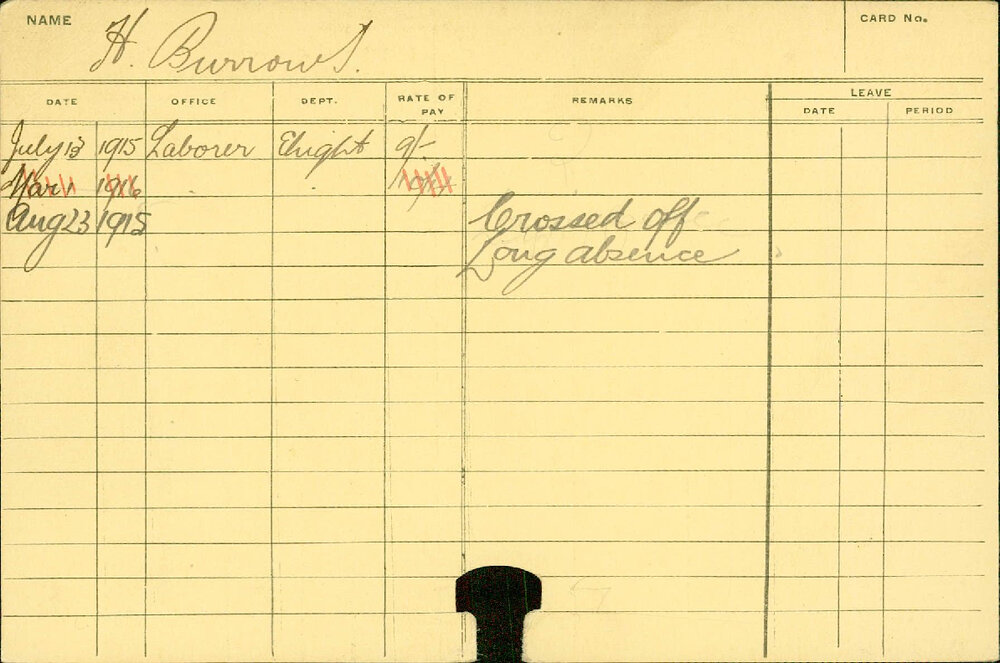 NAME H. Burrows. CARD No.
DATE OFFICE DEPT. RATE OF PAY REMARKS LEAVE
DATE PERIOD
July 13 1915 Laborer Elright 9/-
Mar 1 1916
Aug 23 1915 Crossed off
Long absence